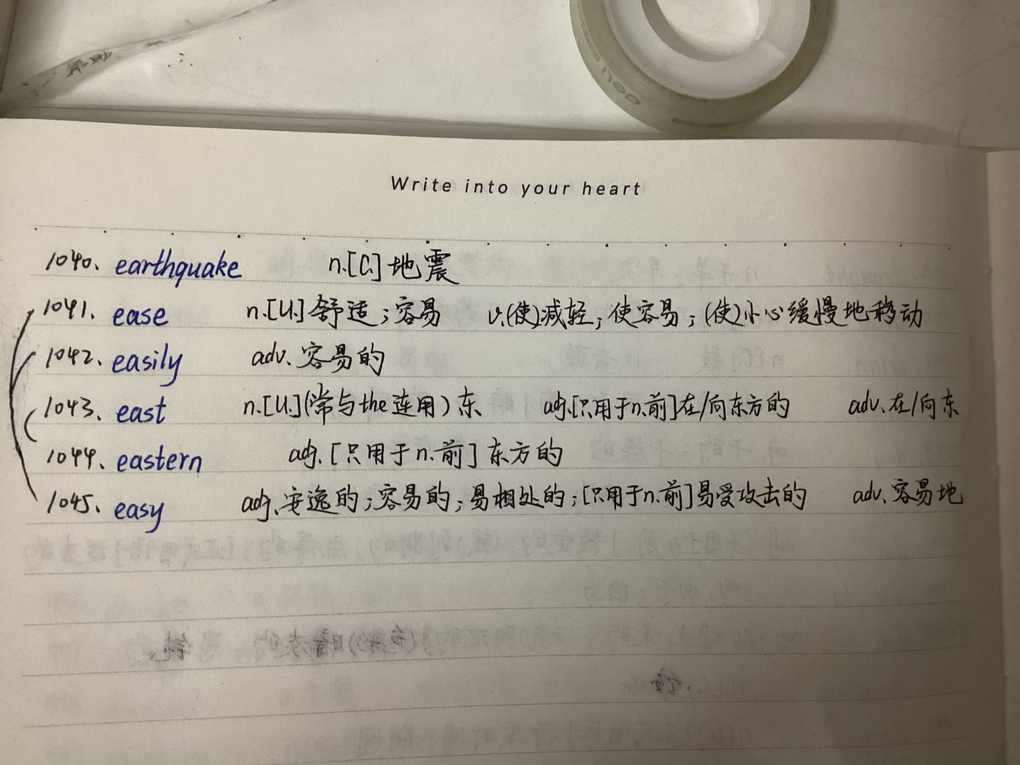 Write into your heart
1040. earthquake n.[C.] 地震
1041. ease n.[U.] 舒适；容易 v.(使)减轻；使容易；(使)小心缓慢地移动
1042. easily adv. 容易的
1043. east n.[U.](常与the连用) 东 adj.[只用于n.前]在/向东方的 adv.在/向东
1044. eastern adj. [只用于n.前] 东方的
1045. easy adj. 安逸的；容易的；易相处的；[只用于n.前]易受攻击的 adv. 容易地